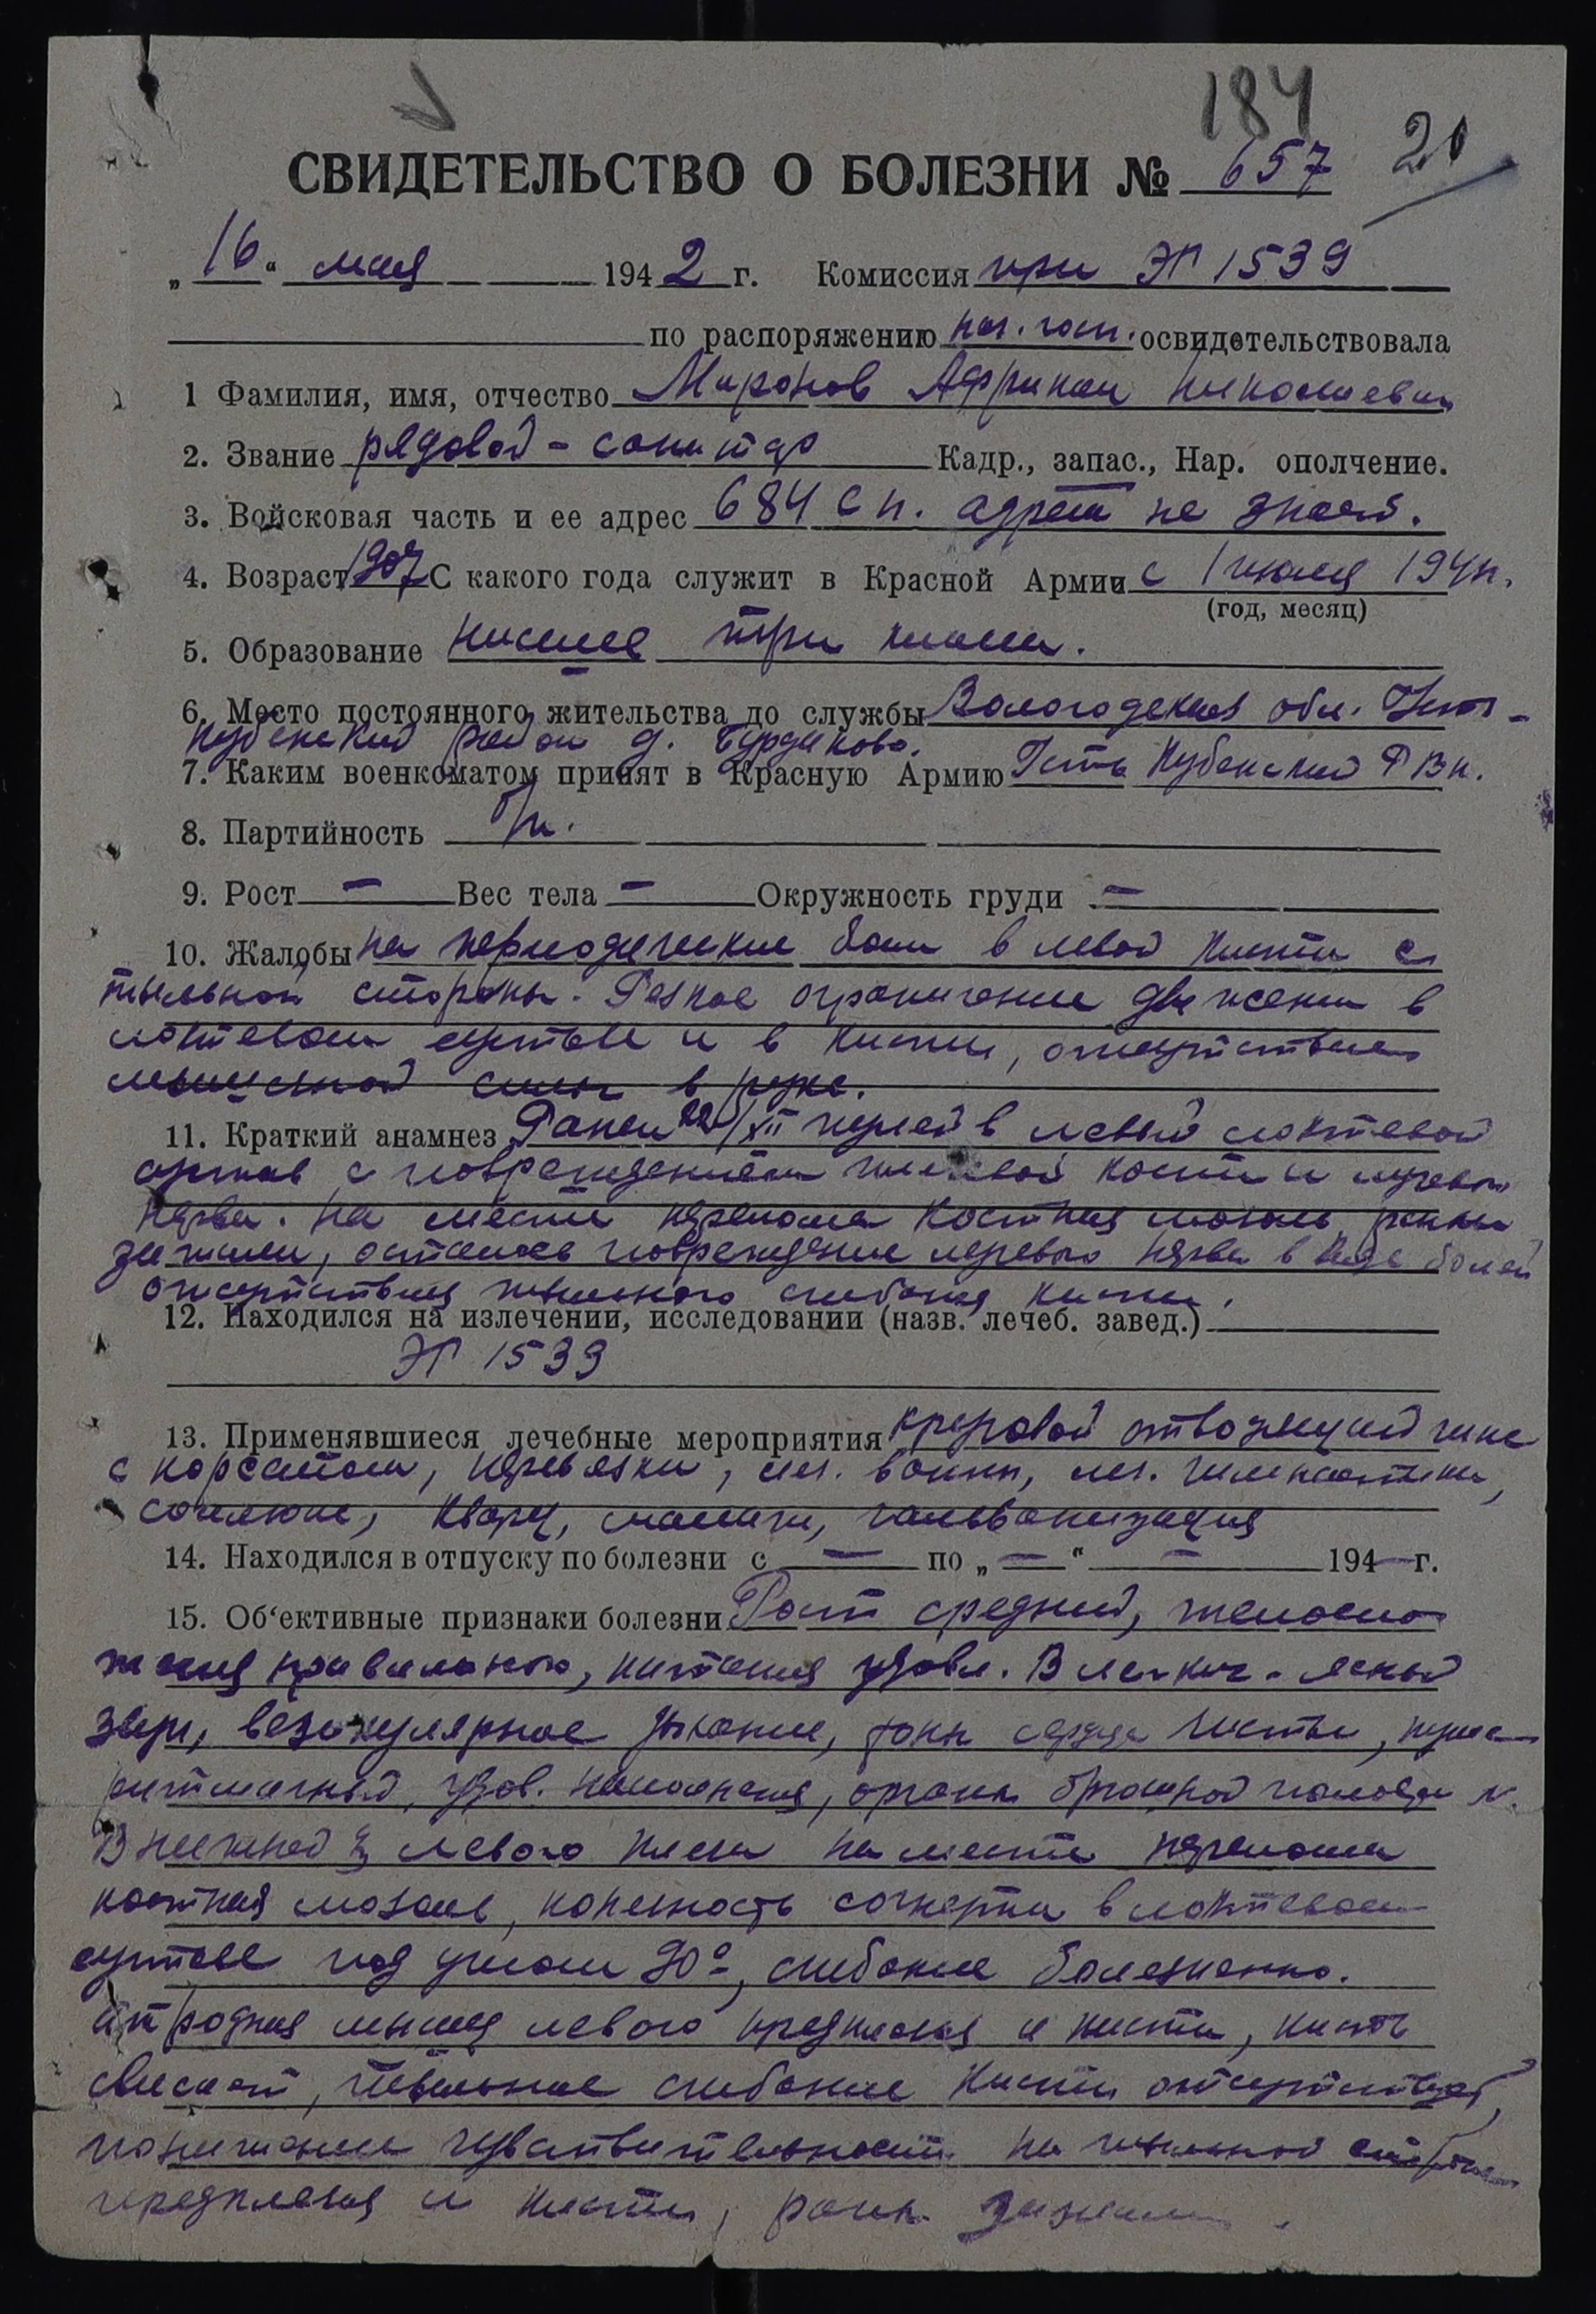 184
СВИДЕТЕЛЬСТВО О БОЛЕЗНИ № 657 20
„16“ мая 1942 г. Комиссия при ЭГ 1539
по распоряжению нач. госп. освидетельствовала
1 Фамилия, имя, отчество Миронов Африкан Николаевич
2. Звание рядовой - санитар Кадр., запас., Нар. ополчение.
3. Войсковая часть и ее адрес 684 сп. адреса не знает.
4. Возраст 1907 С какого года служит в Красной Армии с 1 июля 1941г.
(год, месяц)
5. Образование низшее три класса.
6. Место постоянного жительства до службы Вологодская обл. Усть-
Кубенский район д. Бурдуково.
7. Каким военкоматом принят в Красную Армию Усть Кубенский РВК.
8. Партийность б/п.
9. Рост — Вес тела — Окружность груди —
10. Жалобы на периодические боли в левой кисти с
тыльной стороны. Резкое ограничение движения в
локтевом суставе и в кисти, отсутствие
мышечной силы в руке.
11. Краткий анамнез Ранен 22/XII пулей в левый локтевой
сустав с повреждением плечевой кости и лучевого
нерва. На месте перелома костная мозоль, раны
зажили, осталось повреждение лучевого нерва в виде болей
отсутствия тыльного сгибания кисти.
12. Находился на излечении, исследовании (назв. лечеб. завед.)
ЭГ 1539
13. Применявшиеся лечебные мероприятия отводящий гипс
с корсетом, перевязки, леч. ванны, леч. гимнастика,
солюкс, кварц, массаж, гальванизация
14. Находился в отпуску по болезни с — по „—“ — 194— г.
15. Об‘ективные признаки болезни Рост средний, телосло-
жения правильного, питания удовл. В легких - ясный
звук, везикулярное дыхание, тоны сердца чисты, пульс
ритмичный, удов. наполнения, органы брюшной полости N.
В нижней ⅓ левого плеча на месте перелома
костная мозоль, конечность согнута в локтевом
суставе под углом 90°, сгибание болезненно.
Атрофия мышц левого предплечья и кисти, кисть
свисает, тыльное сгибание кисти отсутствует,
понижение чувствительности на тыльной стороне
предплечья и кисти, раны зажили.